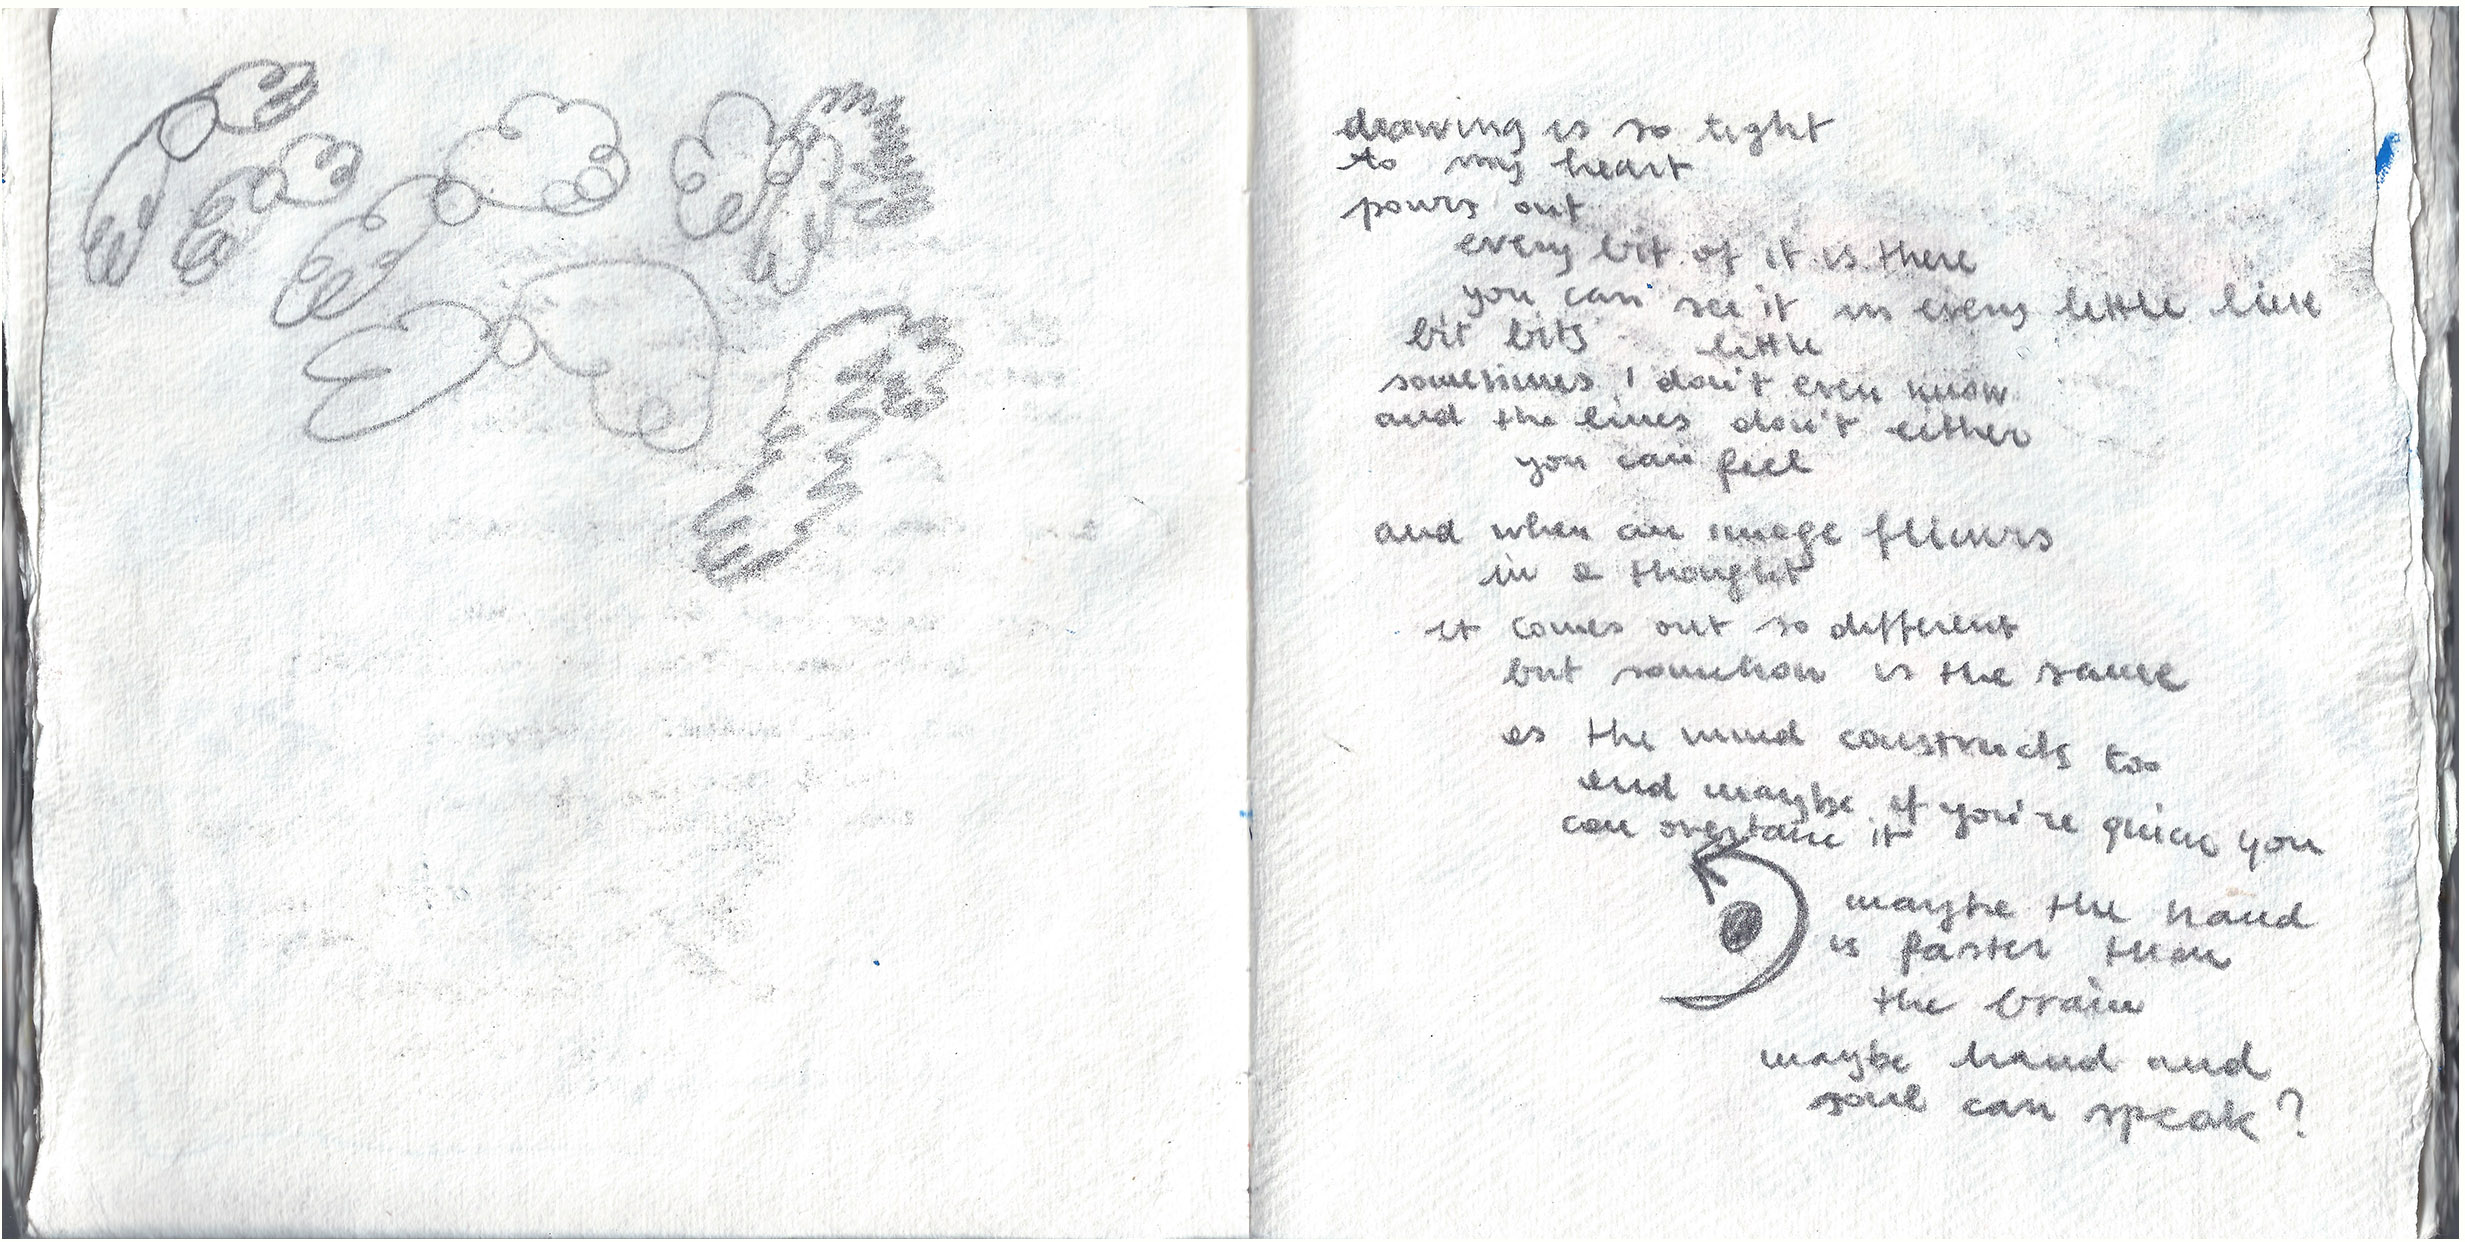 drawing is so tight
to my heart
pours out
every bit of it is there
you can see it in every little line
bit bits little
sometimes I don't even know
and the lines don't either
you can feel
and when an image flickers
in a thought
it comes out so different
but somehow is the same
as the mind constructs too
and maybe if you're quick you
can overtake it
maybe the hand
is faster than
the brain
maybe hand and
soul can speak?